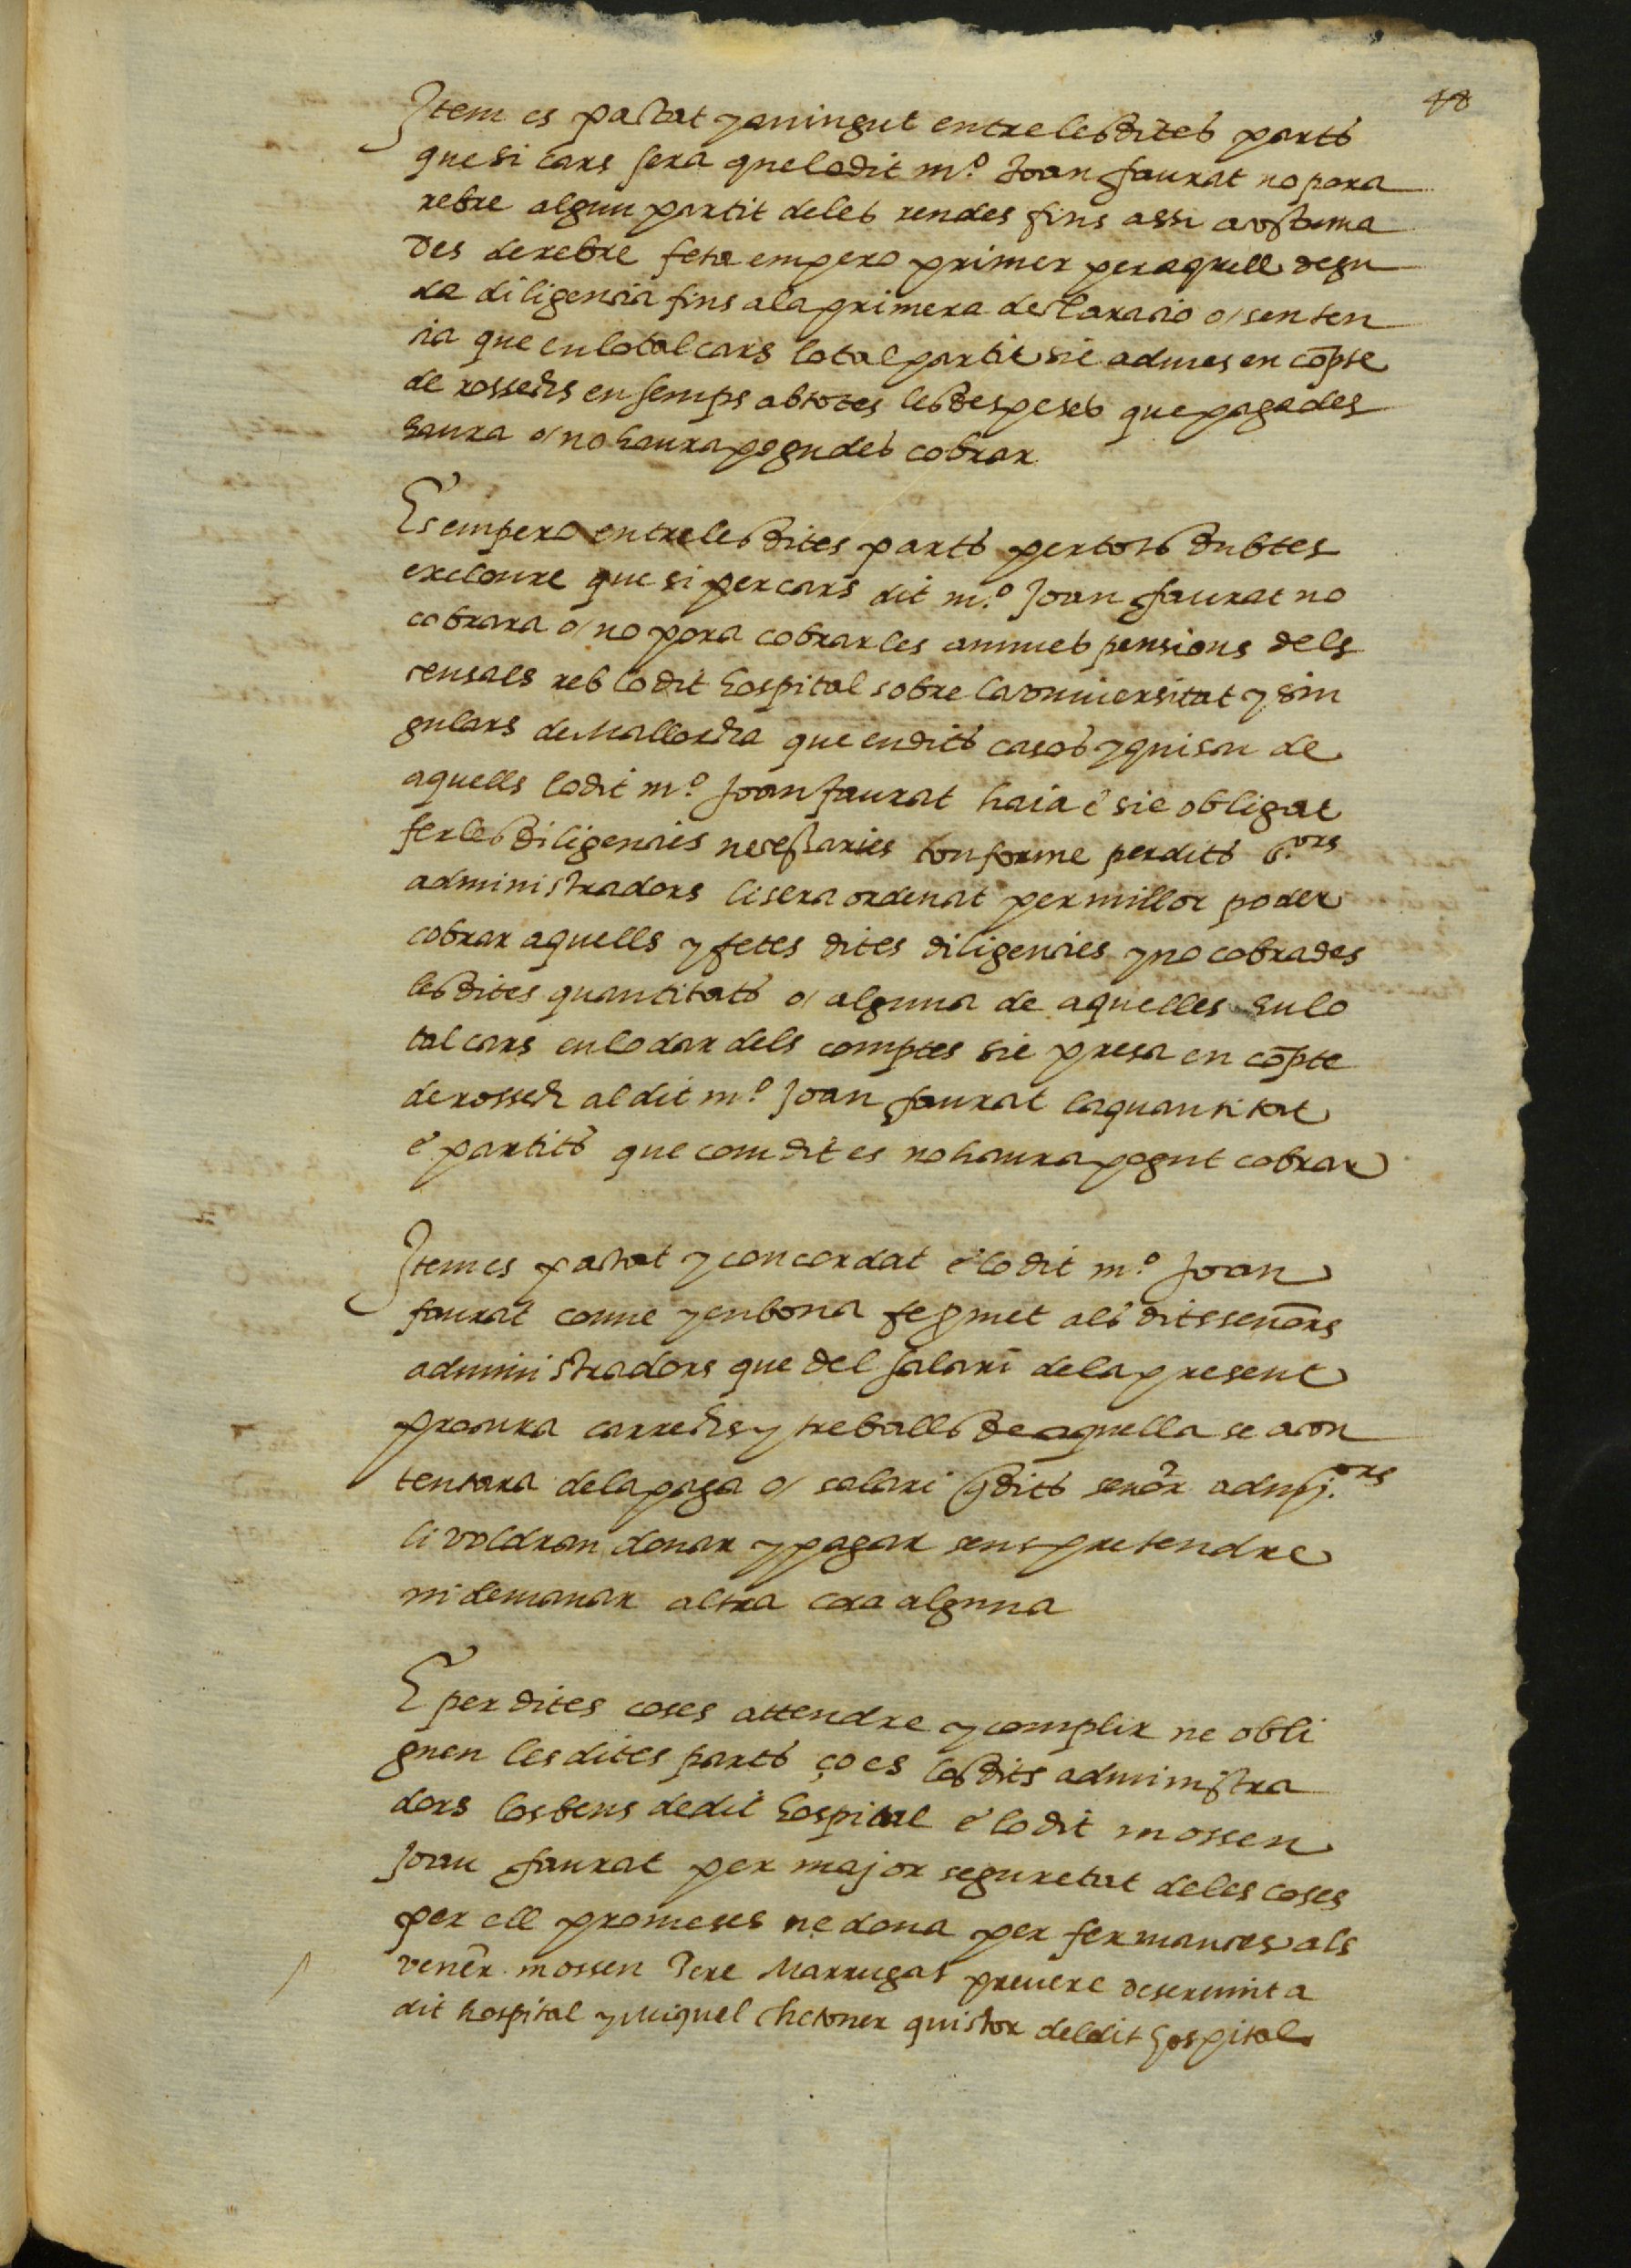 48
Item es pactat y avingut entre les dites parts
que si cars sera que lo dit mº Joan faurat no pora
rebre algun partit de les rendes fins assi acostuma
des de rebre feta empero primer per aquell degu
da diligencia fins a la primera declaracio o senten
cia que en lo tal cars lo tal partit sie admes en cõpte
de rossechs ensemps ab totes les despeses que pagades
haura o no haura pogudes cobrar
Es empero entre les dites parts per tots dubtes
excloure que si per cars dit mº Joan faurat no
cobrara o no pora cobrar les annues pensions dels
censals reb lo dit hospital sobre la vniuersitat y sin
gulars de Mallorcha que en dits casos y quiscu de
aquells lo dit mº Joan faurat haia e sie obligat
fer les diligencies necessaries conforme per dits sors
administradors li sera ordenat per millor poder
cobrar aquells y fetes dites diligencies y no cobrades
les dites quantitats o alguna de aquelles en lo
tal cars en lo dar dels comptes sie presa en cõpte
de rossech al dit mº Joan faurat la quantitat
e partits que com dit es no haura pogut cobrar
Item es pactat y concordat e lo dit mº Joan
faurat conve y en bona fe pmet als dits señors
administradors que del salari de la present
procura carrechs y treballs de aquella se acon
tentara de la paga o salari q dits señor admj.ors
li voldran donar y pagar sens pretendre
ni demanar altra cosa alguna
E per dites coses attendre y complir ne obli
guen les dites parts ço es los dits administra
dors los bens de dit hospital e lo dit mossen
Joan faurat per major seguretat de les coses
per ell promeses ne dona per fermances als
venẽr mossen Pere Marrugat prevere deservint a
dit hospital y Miquel Chetoner quistor del dit hospital